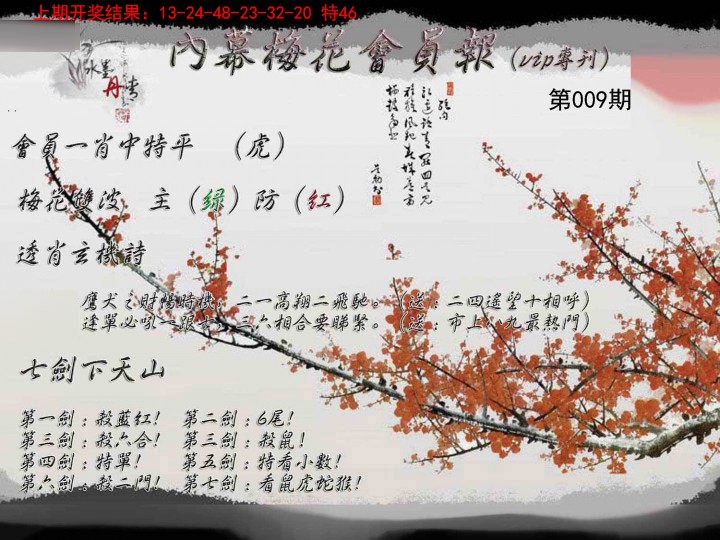 上期开奖结果：13-24-48-23-32-20 特46
內幕梅花會員報(vip專刊)
第009期
會員一肖中特平 （虎）
梅花雙波 主（绿）防（红）
透肖玄機詩
二一高翔二飛馳。（送：二四遙望十相呼）
三六相合要睇緊。（送：市上八九最熱門）
七劍下天山
第一劍：殺藍红! 第二劍：6尾!
第三劍：殺六合! 第三劍：殺鼠！
第四劍：特單! 第五劍：特看小數!
第六劍：殺二門! 第七劍：看鼠虎蛇猴!